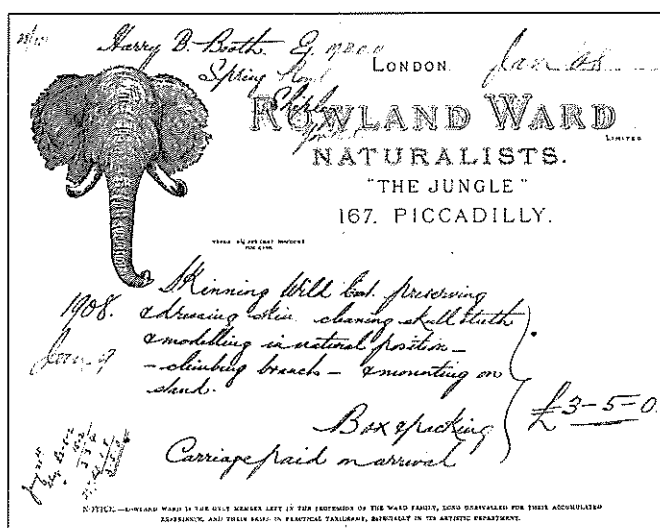 Harry B. Booth Esq
Spring
LONDON. Jan 08
Shipley
ROWLAND WARD
LIMITED
NATURALISTS.
"THE JUNGLE"
167. PICCADILLY.
1908.
Jan 9
Skinning Wild Cat. preserving
& dressing skin cleaning skull & teeth
& modelling in natural position –
– climbing branch – & mounting on
stand.
Box & packing
Carriage paid on arrival
£3-5-0.
NOTICE.—ROWLAND WARD IS THE ONLY MEMBER LEFT IN THE PROFESSION OF THE WARD FAMILY, LONG UNRIVALLED FOR THEIR ACCUMULATED
EXPERIENCE, AND THEIR SKILL IN PRACTICAL TAXIDERMY, ESPECIALLY IN ITS ARTISTIC DEPARTMENT.